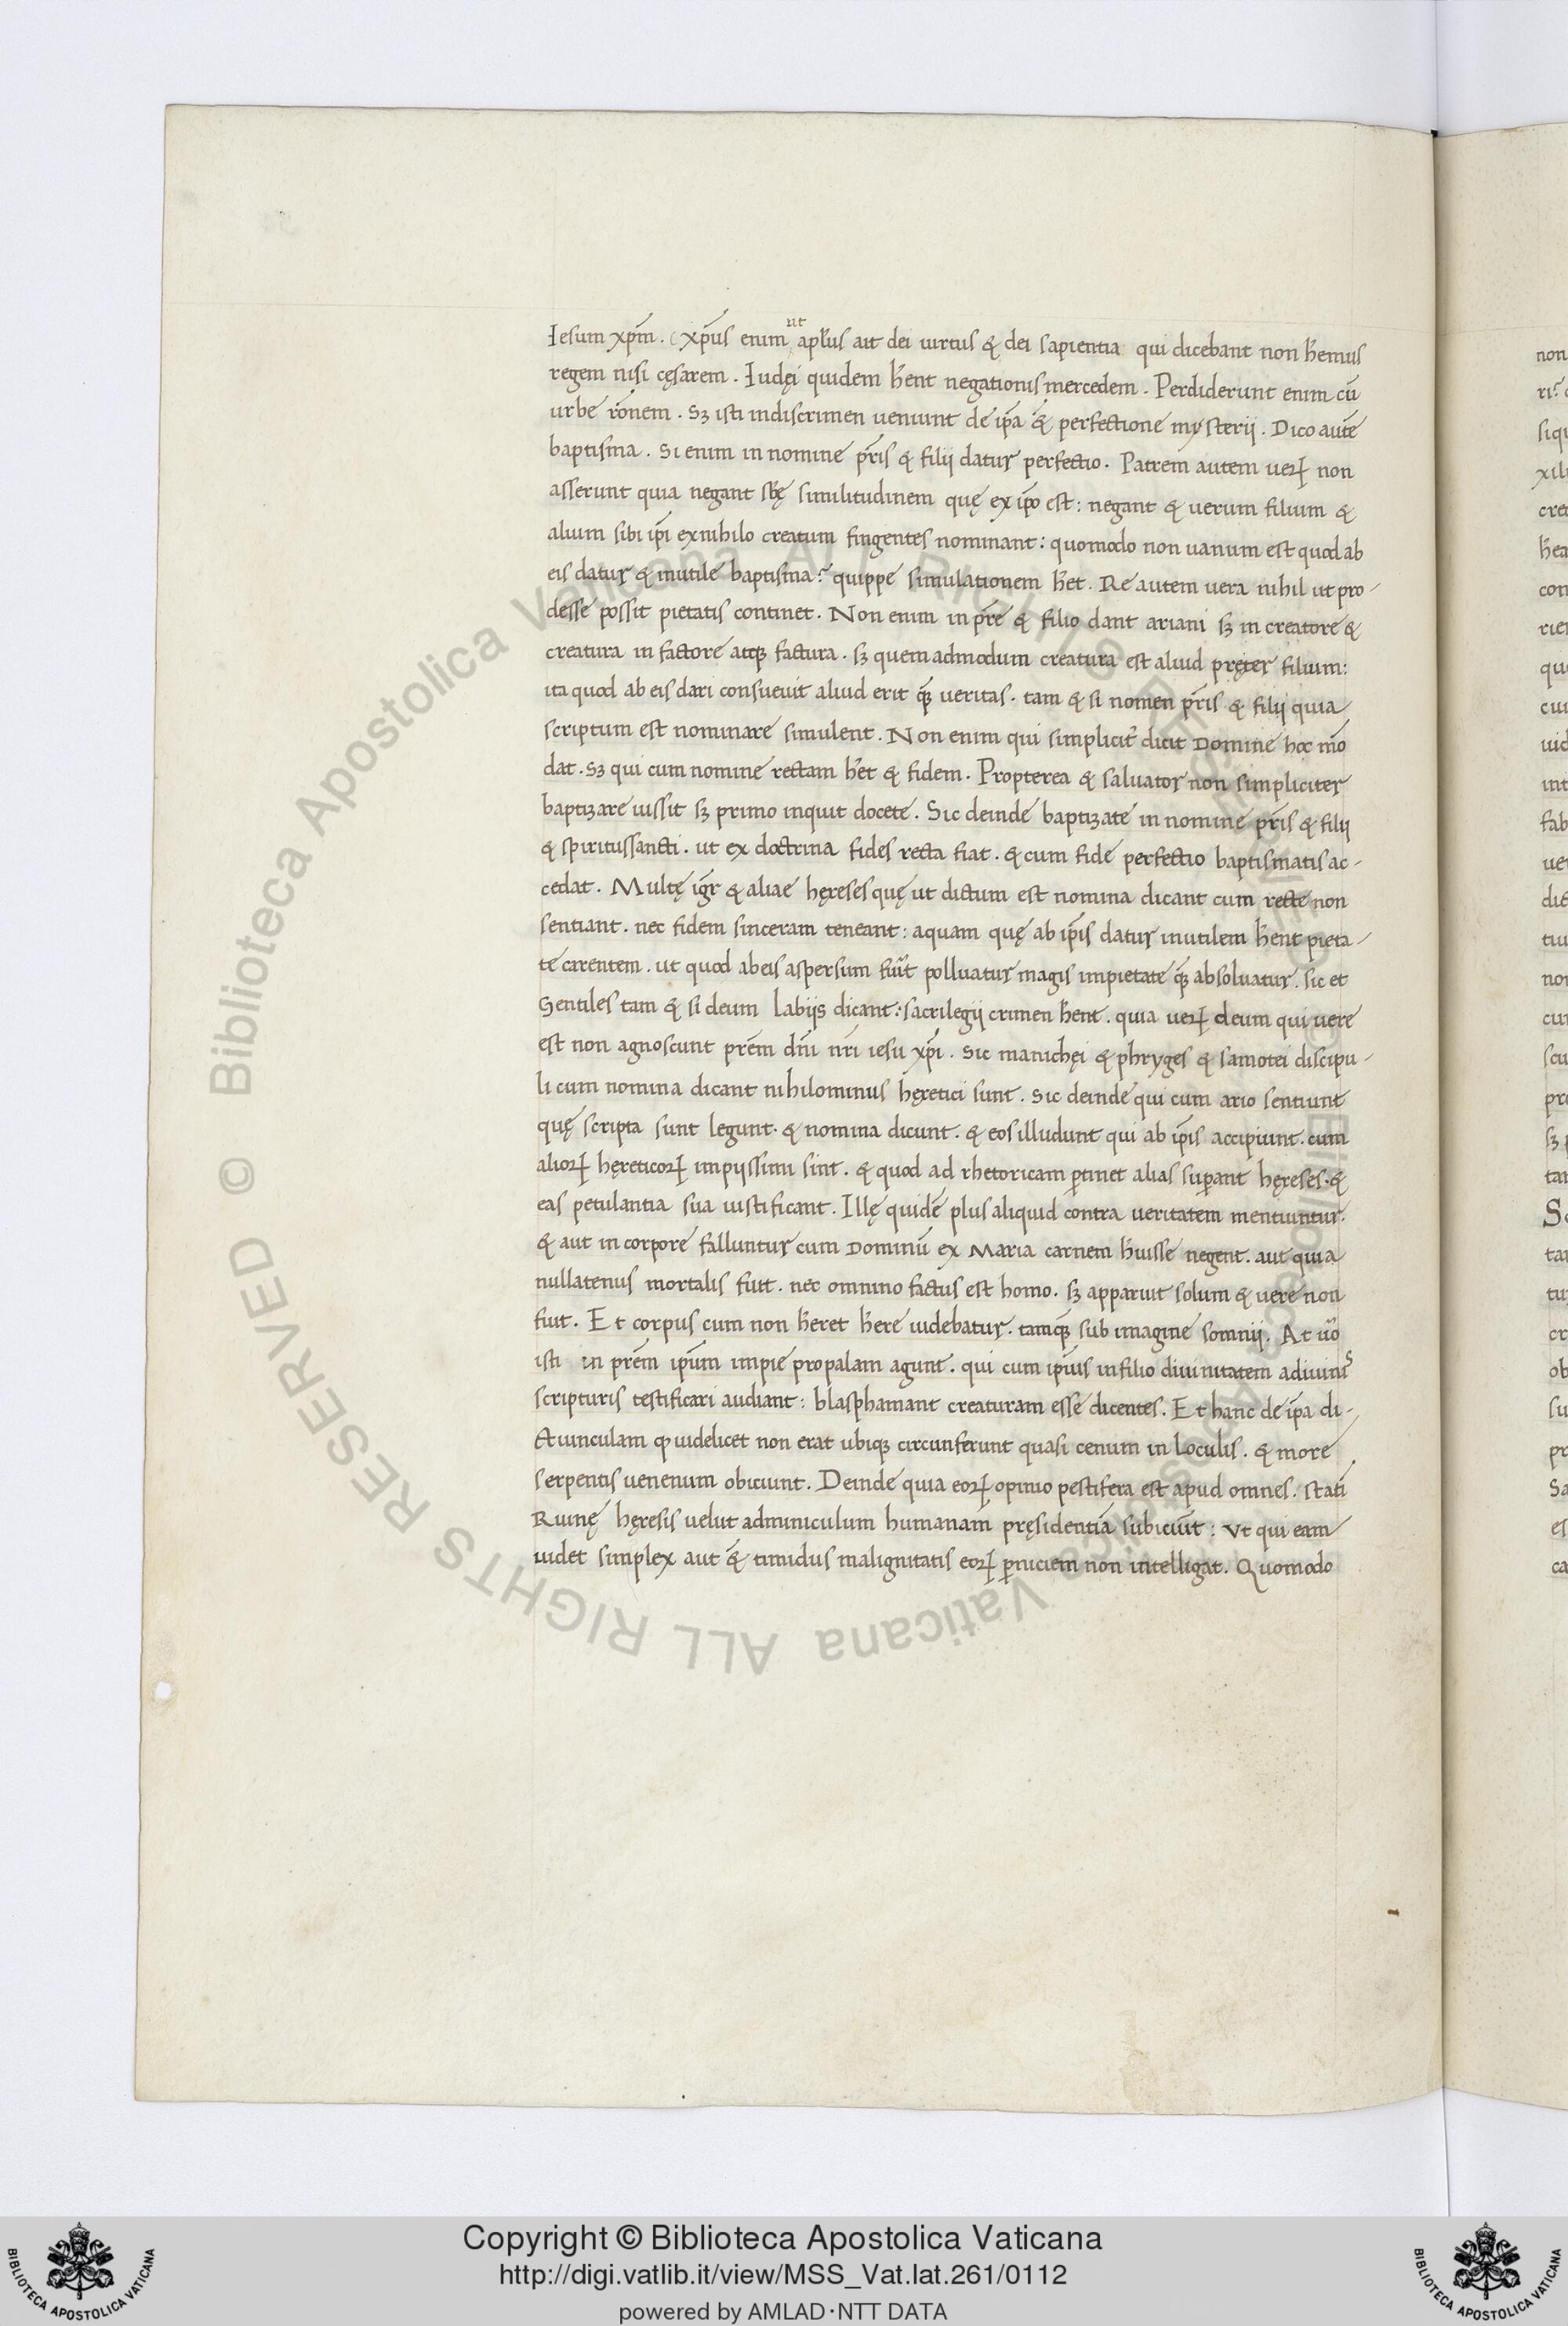 Iesum xp̄m. (xp̄us enim ut apl̄us ait dei uirtus & dei sapientia qui dicebant non hēmus
regem nisi cęsarem. Iudęi quidem hēnt negationis mercedem. Perdiderunt enim cū
urbe rōnem. Sꝫ isti indiscrimen ueniunt de ip̄a &̄ perfectione mysterii. Dico autē
baptisma. Si enim in nomine pr̄is & filij datur perfectio. Patrem autem ueꝝ non
asserunt quia negant sbę̄ similitudinem quę ex ip̄o est: negant & uerum filium &
alium sibi ip̄i exnihilo creatum fingentes nominant: quomodo non uanum est quod ab
eis datur & inutile baptisma? quippe simulationem hēt. Re autem uera nihil ut pro-
desse possit pietatis continet. Non enim in pr̄e & filio dant ariani sꝫ in creatore &
creatura in factore atqꝫ factura. sꝫ quemadmodum creatura est aliud pręter filium:
ita quod ab eis dari consueuit aliud erit q̄ꝫ ueritas. tam & si nomen pr̄is & filij quia
scriptum est nominare simulent. Non enim qui simplicit̄ dicit Domine hoc mō
dat. Sꝫ qui cum nomine rectam hēt & fidem. Propterea & saluator non simpliciter
baptizare iussit sꝫ primo inquit docete. Sic deinde baptizate in nomine pr̄is & filij
& spiritussancti. ut ex doctrina fides recta fiat. & cum fide perfectio baptismatis ac-
cedat. Multę igr̄ & aliae hęreses quę ut dictum est nomina dicant cum recte non
sentiant. nec fidem sinceram teneant: aquam quę ab ip̄is datur inutilem hēnt pieta-
te carentem. ut quod abeis aspersum fūit polluatur magis impietate q̄ꝫ absoluatur. sic et
Gentiles tam & si deum labijs dicant: sacrilegij crimen hēnt. quia ueꝝ deum qui uere
est non agnoscunt prēm dn̄i nr̄i iesu xp̄i. Sic manichęi & phryges & samotei discipu-
li cum nomina dicant nihilominus hęretici sunt. Sic deinde qui cum ario sentiunt
quę scripta sunt legunt. & nomina dicunt. & eos illudunt qui ab ip̄is accipiunt. cum
alioꝝ hęreticoꝝ impijssimi sint. & quod ad rhetoricam ꝑtinet alias suꝑant hęreses. &
eas petulantia sua iustificant. Illę quidē plus aliquid contra ueritatem mentiuntur.
& aut in corpore falluntur cum Dominū ex Maria carnem hūisse negent. aut quia
nullatenus mortalis fuit. nec omnino factus est homo. sꝫ apparuit solum & uere non
fuit. Et corpus cum non hēret hēre uidebatur. tamq̄ꝫ sub imagine somnij. At ūo
isti in prēm ip̄um impie propalam agunt. qui cum ip̄ius infilio diuinitatem adiuinis
scripturis testificari audiant: blasphamant creaturam esse dicentes. Et hanc de ip̄a di-
ctiunculam ꝙ uidelicet non erat ubiqꝫ circunferunt quasi cenum in loculis. & more
serpentis uenenum obiciunt. Deinde quia eoꝝ opinio pestifera est apud omnes. stati
Ruinę hęresis uelut adminiculum humanam pręsidentiā subiciūt: Vt qui eam
uidet simplex aut &̄ timidus malignitatis eoꝝ ꝑniciem non intelligat. Quomodo
Copyright © Biblioteca Apostolica Vaticana
http://digi.vatlib.it/view/MSS_Vat.lat.261/0112
powered by AMLAD·NTT DATA